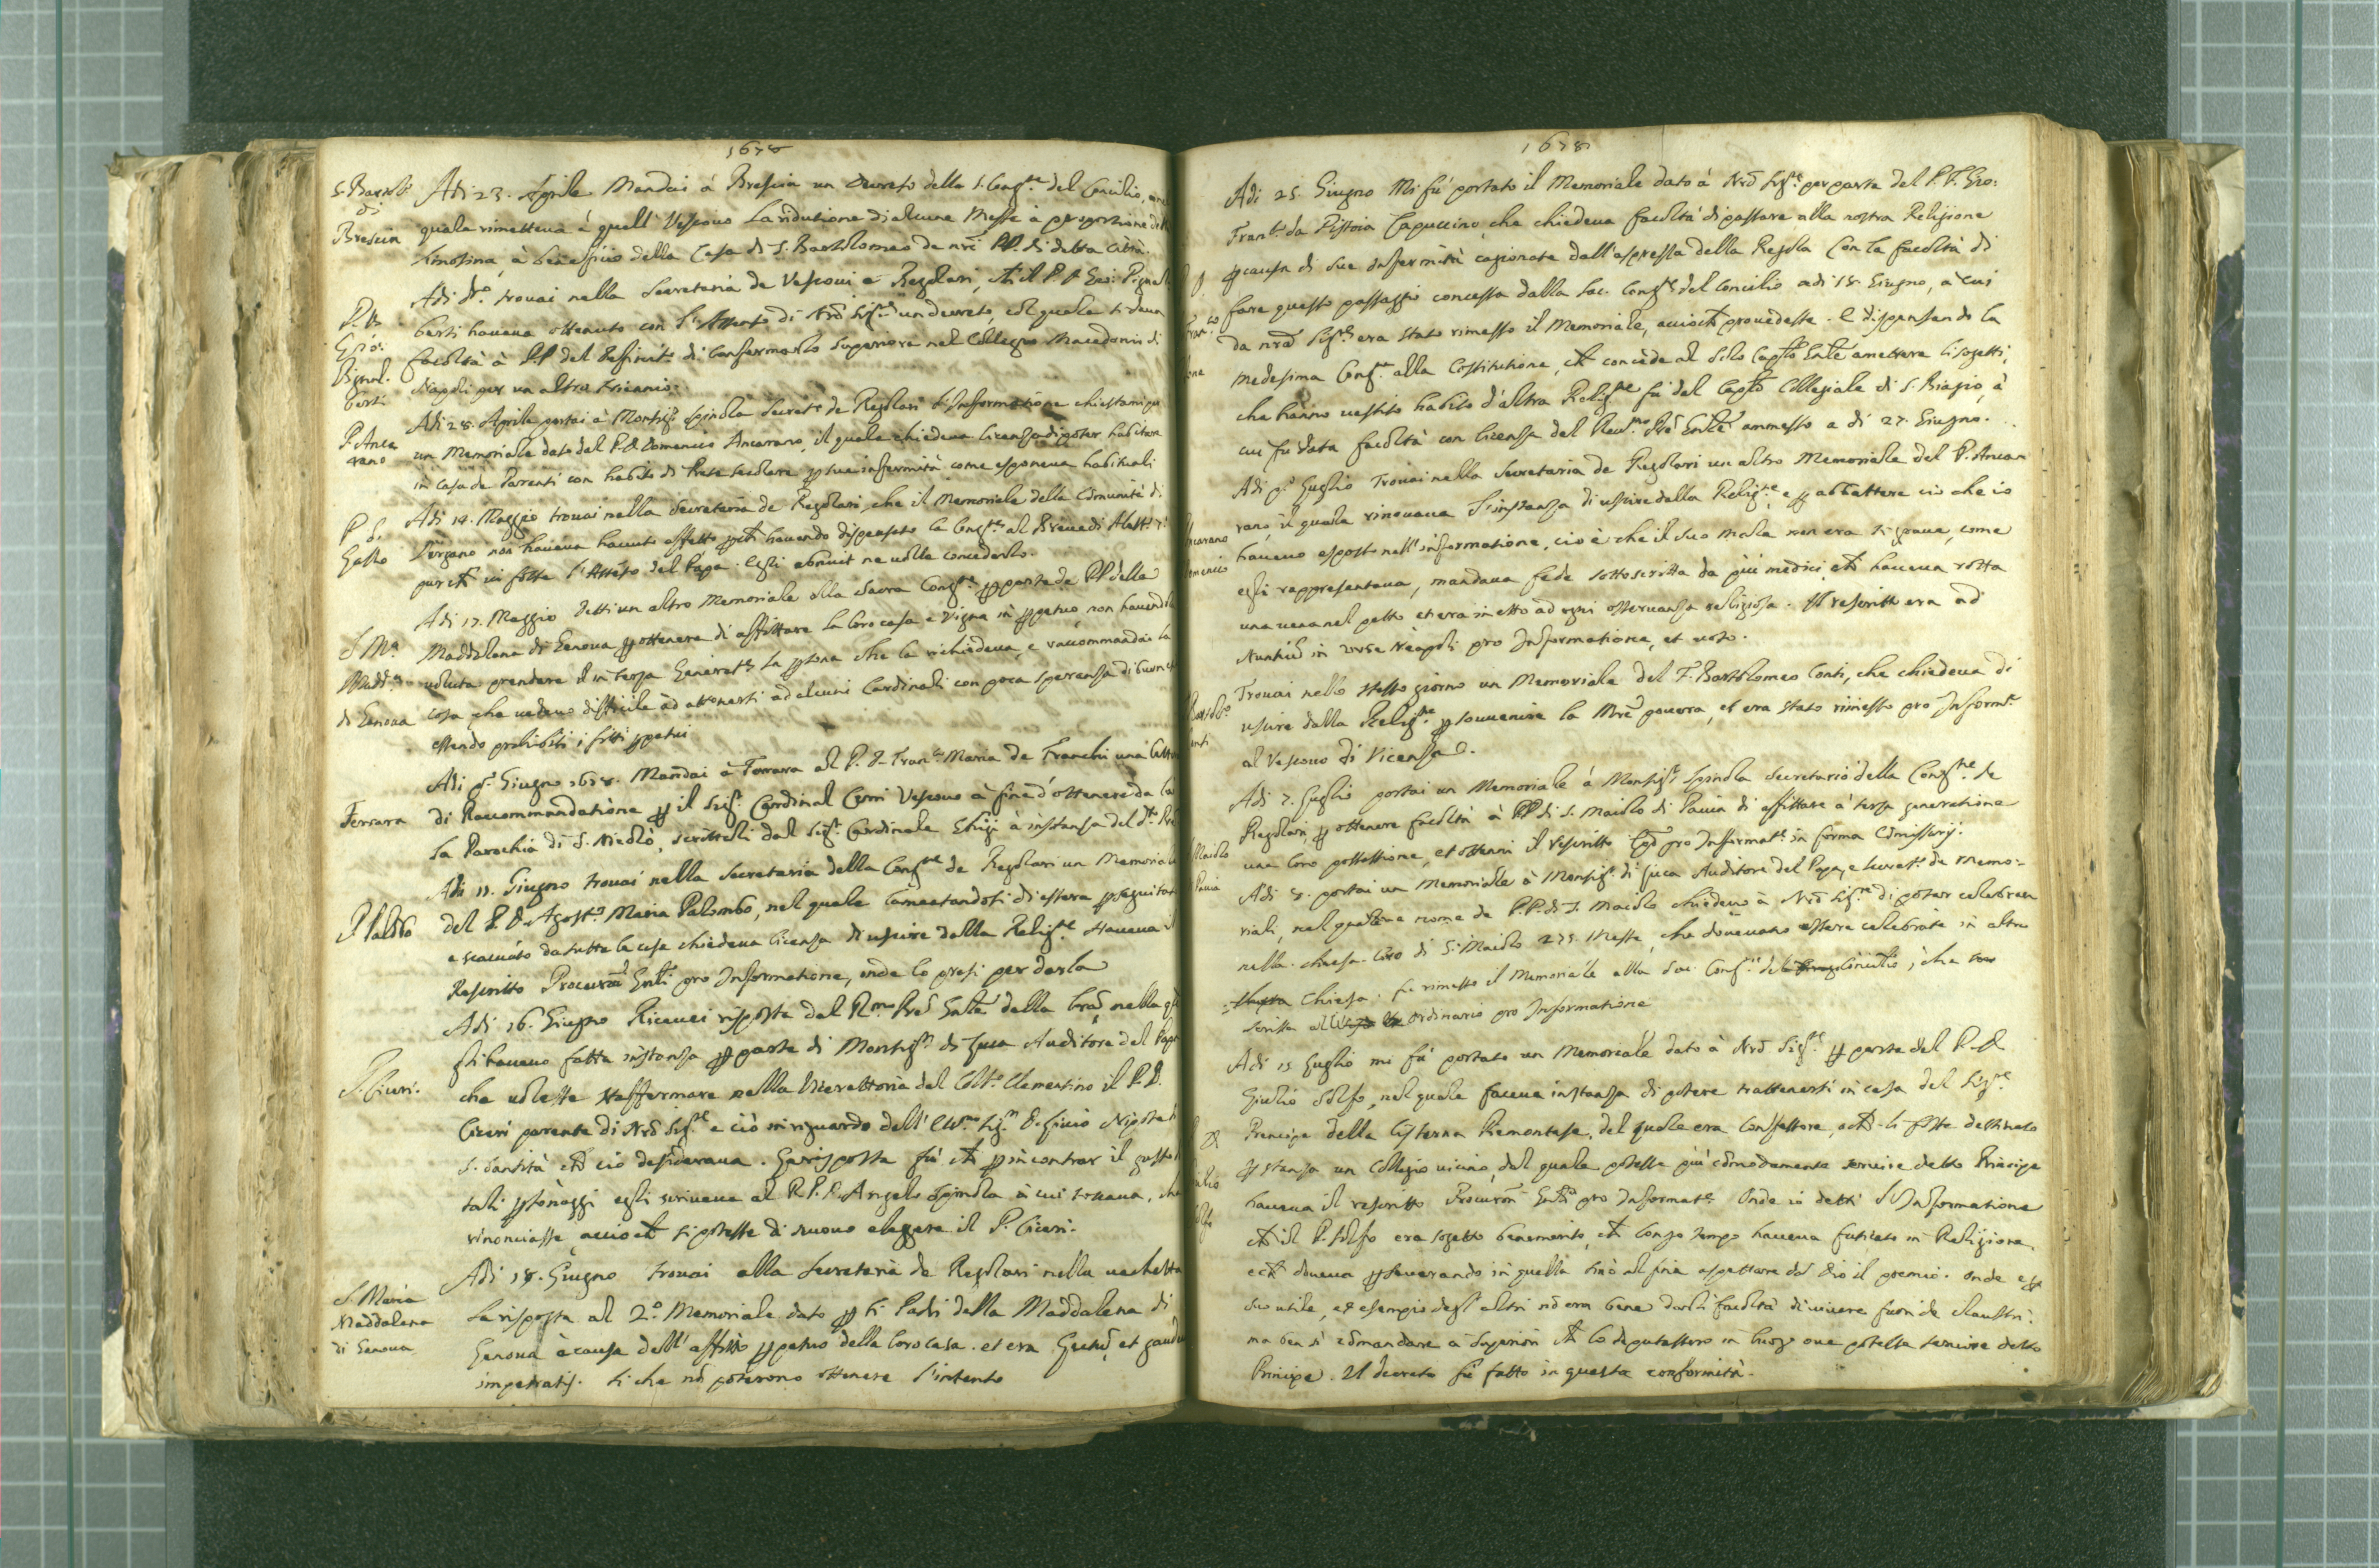 1678
S. Bartol.
di
Brescia
Adi 23. Aprile Mandai à Brescia un Decreto della S. Congne del Concilio,
quale rimetteua à quell' Vescouo La ridutione di alcune Messe à proportione
limosina, à beneficio della Casa di S. Bartolomeo de nri PP. di detta città.
P. D.
Gio:
Pignal.
berti
Adi do. trouai nella Secretaria de Vescoui e Regolari, che il P. D. Gio: Pignal
berti haueua ottenuto con l'Assenso di Nro Sigre un decreto, col quale si daua
facoltà à PP. del Definito di confermarlo Superiore nel Collegio Macedonio di
Napoli per un altro triennio.
P. Anca
rano
Adi 28. Aprile portai à Monsigr Spinola Secreto de Regolari l'Informatione chiestami
un Memoriale dato dal P. D. Domenico Ancarano, il quale chiedeua licenza di poter habitare
in casa de Parenti con habito di Prete secolare per sue infermità come esponeua habituali
P. D.
Gallo
Adi 14. Maggio trouai nella Secretaria de Regolari, che il Memoriale della Comunità di
non haueua hauuto effetto perche hauendo dispensato la Congne al Breue di
pur che ui fosse l'Assenso del Papa. Egli abnuit ne uolle concederlo.
S. Ma
Madda
di Genoua
Adi 17. Maggio Detti un altro Memoriale alla Sacra Congne per parte de PP. della
Maddalena di Genoua per ottenere di affittare la loro casa e Vigna in perpetuo, non hauendola
uoluta prendere in terza Generatne la persona che la richiedeua, e raccommandai la
cosa che uedeuo difficile ad ottenersi ad alcuni Cardinali con poca speranza di buon
essendo prohibiti i fitti perpetui
Ferrara
Adi po. Giugno 1678. Mandai à Ferrara al P. D. Franco Maria de Franchi una lettera
di Raccommandatione per il Sigr Cardinal Cerri Vescouo à fine d'ottenere da lui
la Parochia di S. Nicolò, scrittoli dal Sigr Cardinale Ghigi à instanza del do.
P. Palōbo
Adi 11. Giugno trouai nella Secretaria della Congne de Regolari un Memoriale
del P. D. Agosto Maria Palombo, nel quale lamentandosi di essere perseguitato
e scacciato da tutte le case chiedeua licenza di uscire dalla Religne Haueua il
Rescritto Procuratori Gnli pro Informatione, onde lo presi per darla
P. Ciceri.
Adi 16. Giugno Riceuei risposta dal Rmo Pre Gnle della lra, nella quale
gli haueuo fatta instanza per parte di Monsigr di Luca Auditore del Papa
che uolesse raffermare nella Vicerettoria del Collo Clementino il P. D.
Ciceri parente di Nro Sigre e ciò in riguardo dell' Illmo Sigr D. Liuio Nipote di
S. Santità che ciò desideraua. La risposta fù che per incontrar il gusto di
tali personaggi egli scriueua al R. P. D. Angelo Spinola à cui toccaua, che
rinonciasse, accioche si potesse di nuouo eleggere il P. Ciceri.
S. Maria
Maddalena
di Genoua
Adi 18. Giugno trouai alla Secretaria de Regolari nella uachetta
La risposta al 2o. Memoriale dato per li Padri della Maddalena di
Genoua à causa dell' affitto perpetuo della loro casa. et era Lectum, et gaudeant
impetratis. Si che nō poterono ottenere l'intento
1678
Adi 25. Giugno Mi fù portato il Memoriale dato à Nro Sigre per parte del P. F. Gio:
Franco da Pistoia Capuccino che chiedeua facoltà di passare alla nostra Religione
per causa di sue infermità cagionate dall'asprezza della Regola Con la facoltà di
fare questo passaggio concessa dalla Sac. Congne del Concilio adi 18. Giugno, à cui
da nro Sigre era stato rimesso il Memoriale, accioche prouedesse. E dispensando la
medesima Congne alla Costitutione, che concede al solo Caplo Gnle amettere li sogetti,
che hanno uestito habito d'altra Religne fù dal Caplo Collegiale di S. Biagio, à
cui fù data facoltà con licenza del Reumo Pre Gnle ammesso a di 27. Giugno.
Adi po. Luglio Trouai nella Secretaria de Regolari un altro Memoriale del P. Anca
rano, il quale rinouaua l'instanza di uscire dalla Religne, e per abbattere ciò che io
haueuo esposto nell'informatione, cio è che il suo male non era si graue, come
egli rappresentaua, mandaua fede sottoscritta da più medici, che haueua rotta
una uena nel petto et era inetto ad ogni osseruanza religiosa. Il rescritto era ad
Nuntium in Neapoli pro Informatione, et uoto.
Trouai nello stesso giorno un Memoriale del F. Bartolomeo Conti, che chiedeua di
uscire dalla Religne per souuenire la Mre pouera, et era stato rimesso pro Informne
al Vescouo di Vicenza.
Adi 7. Luglio portai un Memoriale à Monsigr Spinola Secretario della Congne de
Regolari, per ottenere facoltà à PP. di S. Maiolo di Pauia di affittare à terza generatione
una loro possessione, et ottenni il rescritto Epo pro Informatne in forma Comissarij.
Adi 8. portai un Memoriale à Monsigr di Luca Auditore del Papa, e Secreto de Memo:
riali, nel quale a nome de P.P. di S. Maiolo chiedeuo à Nro Sigre di poter celebrare
nella chiesa loro di S. Maiolo 275. Messe, che doueuano essere celebrate in altra
Chiesa. fù rimesso il Memoriale alla Sac. Congne del Concilio; che
scrisse all Ordinario pro Informatione
Adi 15 Luglio mi fù portato un Memoriale dato à Nro Sigre per parte del P. D.
Giulio Solfo, nel quale faceua instanza di potere trattenersi in casa del Sigre
Prencipe della Cisterna Piemontese, del quale era Confessore, o che li fosse destinato
per stanza un Collegio uicino, dal quale potesse più cōmodamente seruire detto Principe
haueua il rescritto Procuratori Gnli pro Informatne. Onde io detti L'Informatione
che il P. Solfo era sogetto benemerito, che longo tempo haueua faticato in Religione
e che doueua perseuerando in quella sino al fine aspettare da Dio il premio. Onde e per
suo utile, et esempio degl'altri nō era bene darli facoltà di uiuere fuori de claustri.
ma ben sì comandare à Superiori che lo deputassero in luogo oue potesse seruire detto
Principe. Il decreto fù fatto in questa conformità.